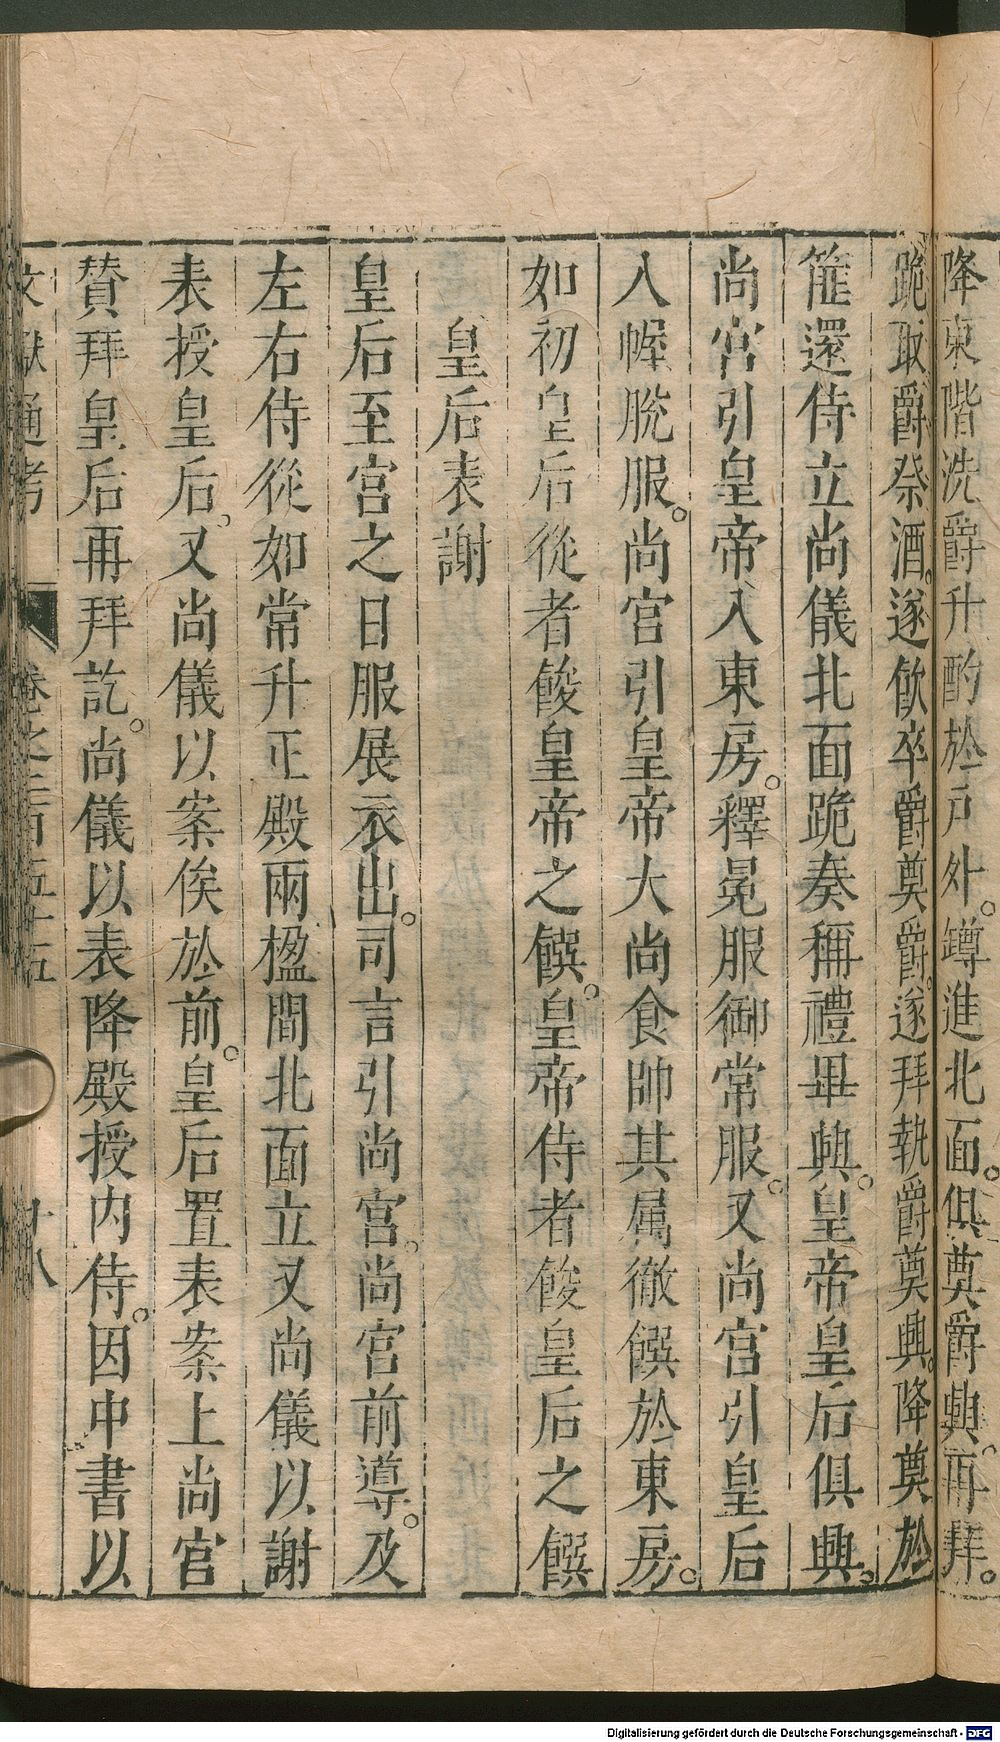 降東階洗爵升酌於戸外。罇進北面。俱奠爵興。再拜。
跪取爵祭酒。遂飮卒爵奠爵。遂拜執爵奠興。降奠於
篚還侍立尚儀北面跪奏稱禮畢興。皇帝皇后俱興。
尚宮引皇帝入東房。釋冕服御常服。又尚宮引皇后
入幄脫服。尚宮引皇帝大尚食帥其属徹饌於東房。
如初皇后從者餕皇帝之饌。皇帝侍者餕皇后之饌
皇后表謝
皇后至宮之日服展衣出。司言引尚宮。尚宮前導。及
左右侍從如常升正殿兩楹間北面立又尚儀以謝
表授皇后。又尚儀以案俟於前。皇后置表案上尚宮
賛拜皇后再拜訖。尚儀以表降殿授内侍。因中書以
文獻通考 卷之二百五十五 十八
Digitalisierung gefördert durch die Deutsche Forschungsgemeinschaft - DFG